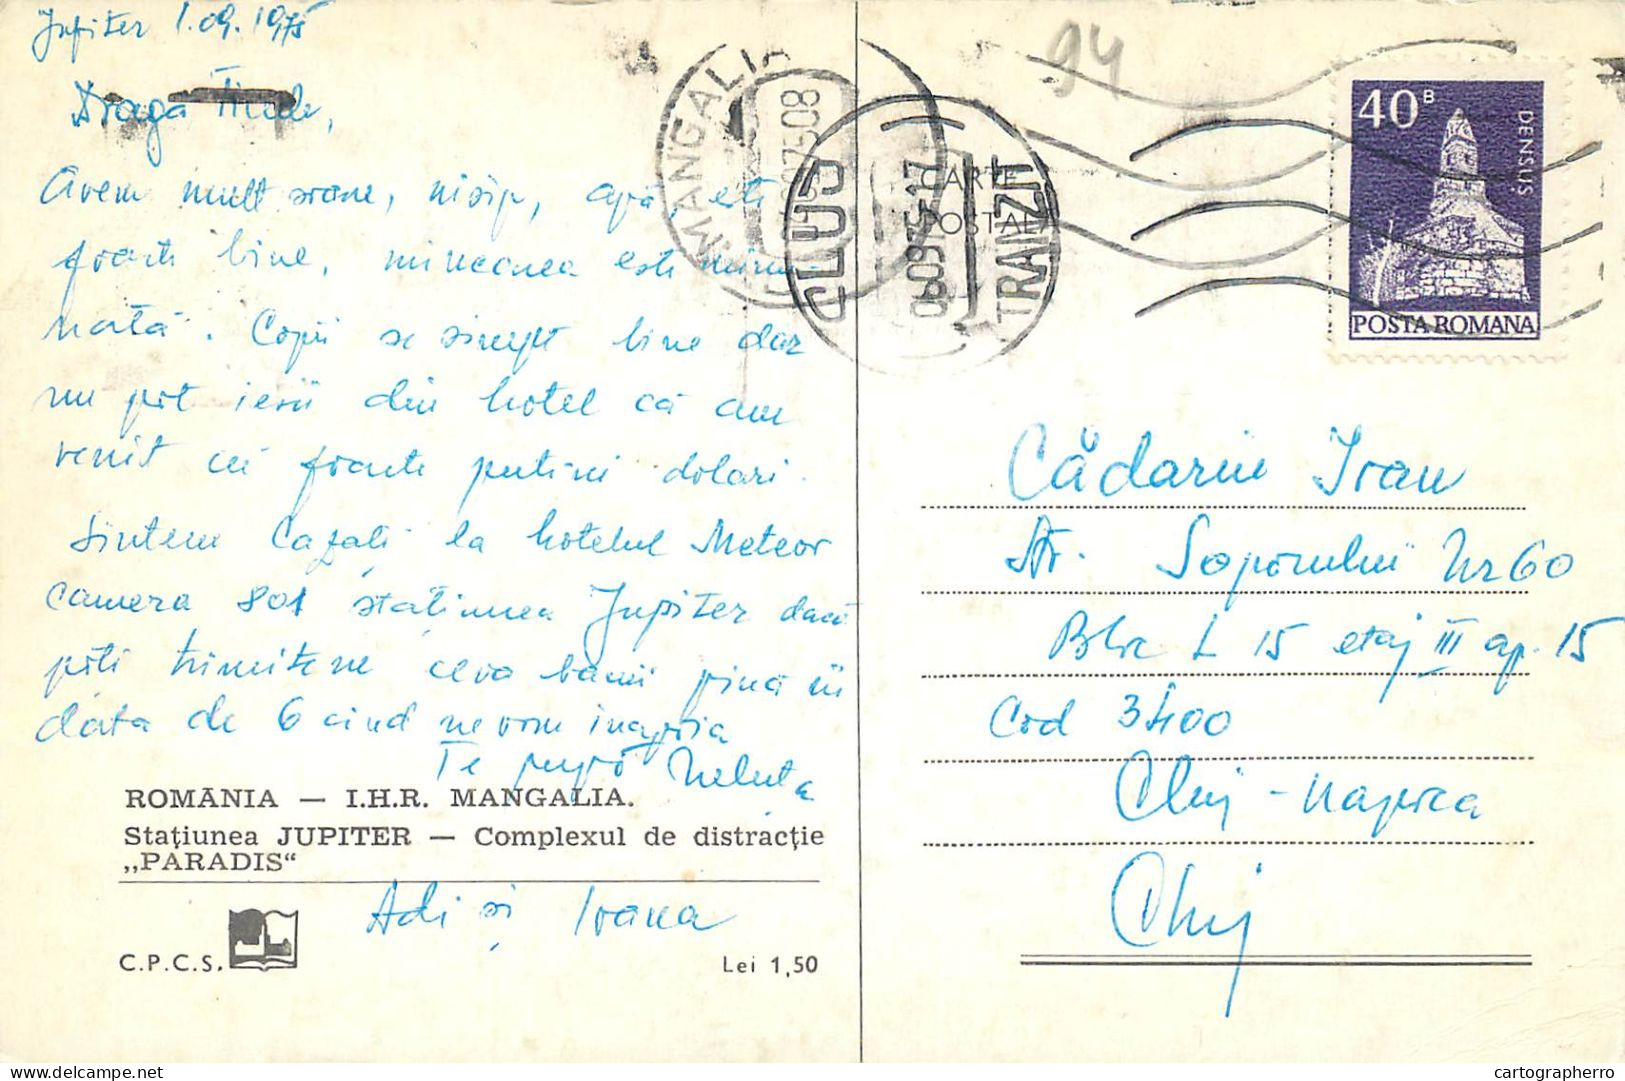 Jupiter 1.09.1975
Dragă
Avem mult soare, nisip, apă, esti
foarte bine, mincarea esti minu-
nată. Copii se simpt bine dar
nu pot iesii din hotel că am
venit cu foarte putini dolari.
Sintem Cazați la hotelul Meteor
camera 801 stațiunea Jupiter dacă
poti trimitene ceva banii pină in
data de 6 cind ne vom inapoia
Te pupă Neluța
ROMÂNIA — I.H.R. MANGALIA.
Stațiunea JUPITER — Complexul de distracție
„PARADIS“
Adi și Ioana
C.P.C.S.
Lei 1,50
94
MANGALIA
75-08
CLUJ
09 75-17
TRANZIT
CARTE
POSTALA
40 B
DENSUS
POSTA ROMANA
Cădariu Ioan
Str. Soporului Nr 60
Bloc L 15 etaj III ap. 15
Cod 3400
Cluj - Napoca
Cluj
cartographerro